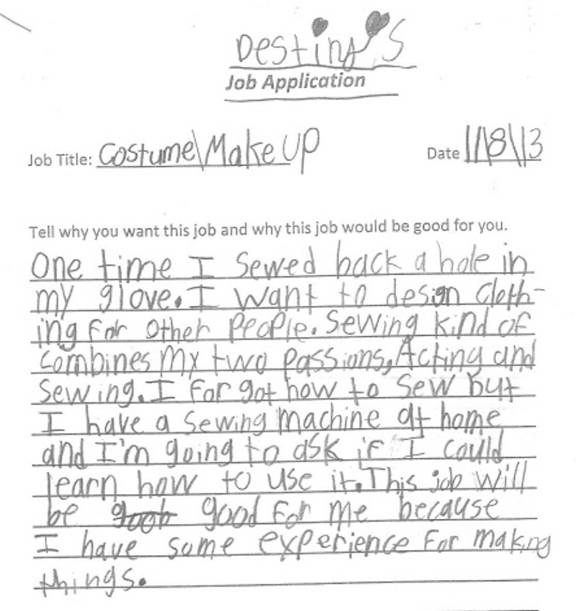 Destiny's
Job Application
Job Title: Costume\Make up
Date 1/18\13
Tell why you want this job and why this job would be good for you.
One time I sewed back a hole in
my glove. I want to design cloth-
ing for other people. Sewing kind of
combines my two passions, Acting and
Sewing. I forgot how to sew but
I have a sewing machine at home
and I'm going to ask if I could
learn how to use it. This job will
be good for me because
I have some experience for making
things.